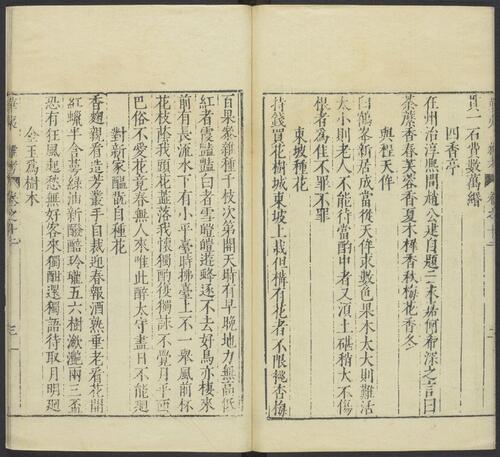 買一石費數萬緡
四香亭
在州治淳熙間趙公建自題云永嘉何希深之言曰
荼蘼香春芙蓉香夏木樨香秋梅花香冬
與程天侔
白鶴峯新居成當從天侔求數色果木太大則難活
太小則老人不能待當酌中者又須土碪稍大不傷
根者為佳不罪不罪
東坡種花
持錢買花樹城東坡上栽但購有花者不限桃杏梅
百果參雜種千枝次第開天時有早晚地力無高低
紅者霞豔豔白者雪皚皚遊蜂遂不去好鳥亦棲來
前有長流水下有小平臺時拂臺上石一舉風前杯
花枝蔭我頭花蕊落我懷獨酌復獨詠不覺月平西
巴俗不愛花竟春無人來唯此醉太守盡日不能迴
對新家醖翫自種花
香麴親看造芳叢手自栽迎春報酒熟垂老看花開
紅蠟半含萼綠油新醱醅玲瓏五六樹瀲灔兩三盃
恐有狂風起愁無好客來獨酣還獨語待取月明迴
令王為樹木
卷之十二
三